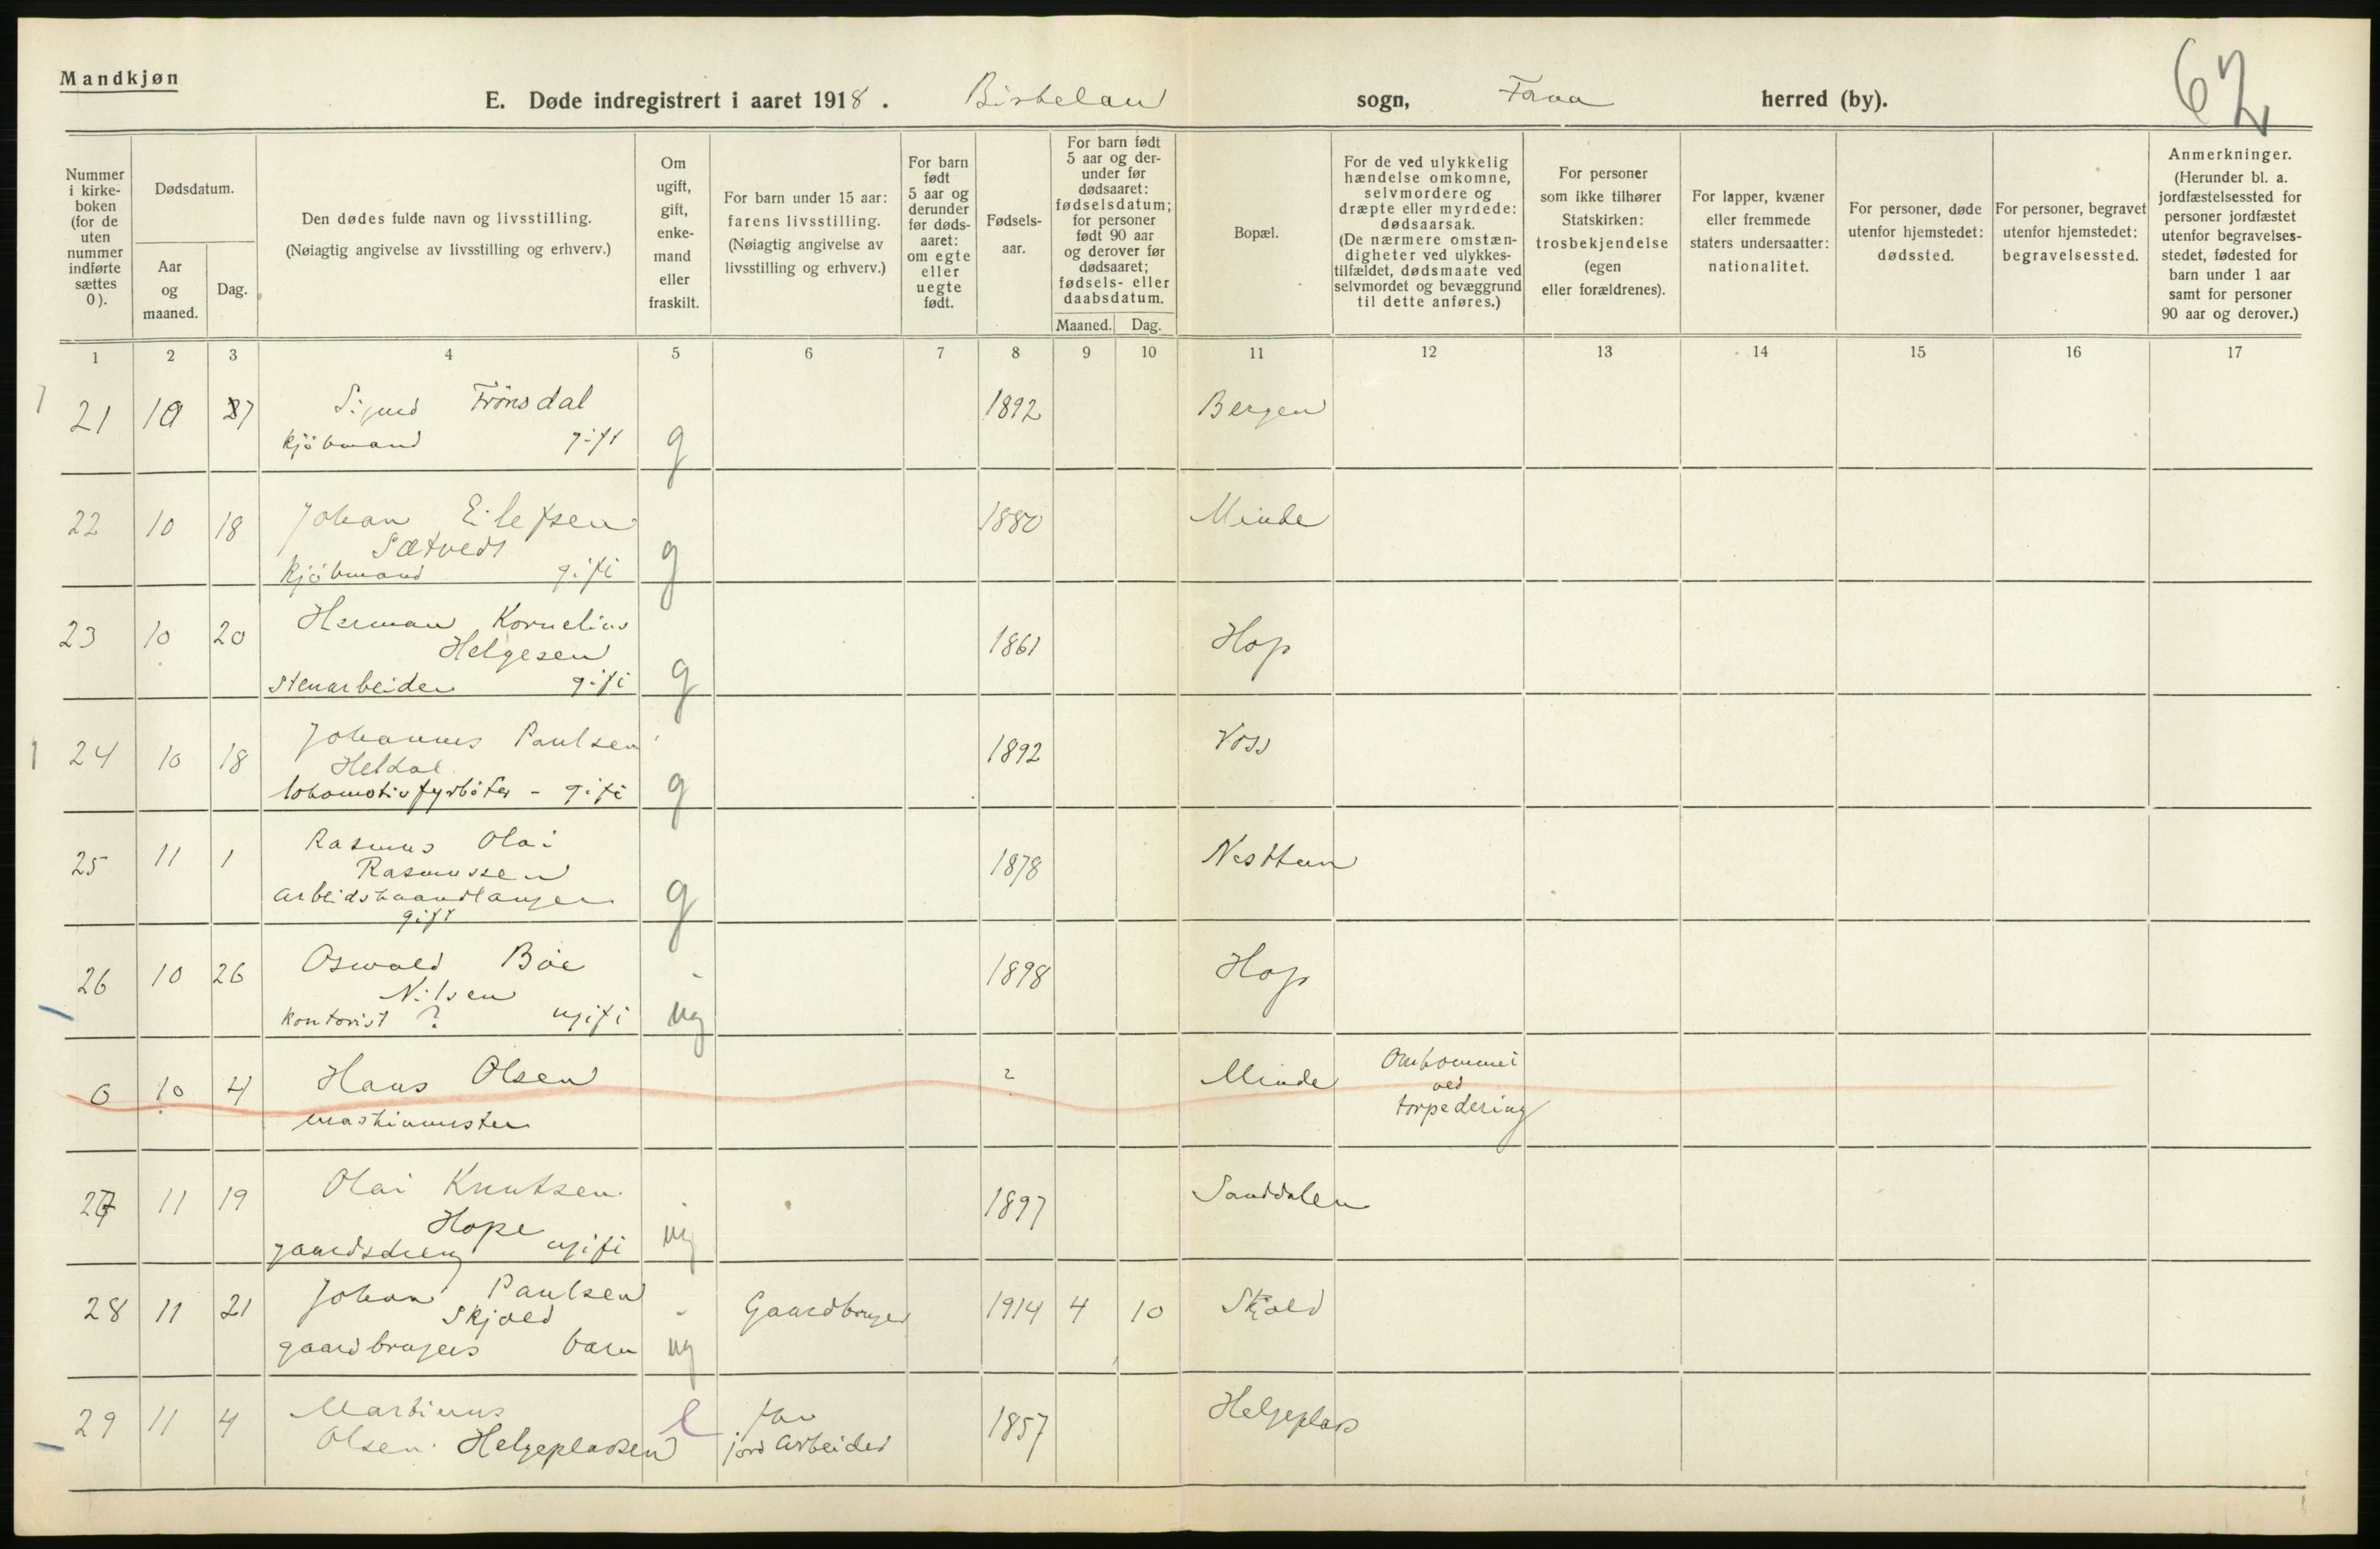 Mandkjøn
E. Døde indregistrert i aaret 1918. Birkeland sogn, Fana herred (by).
62
Nummer i kirkeboken (for de uten nummer indførte sættes 0).
Dødsdatum.
Aar og maaned.
Dag.
Den dødes fulde navn og livsstilling.
(Nøiagtig angivelse av livsstilling og erhverv.)
Om ugift, gift, enkemand eller fraskilt.
For barn under 15 aar: farens livsstilling. (Nøiagtig angivelse av livsstilling og erhverv.)
For barn født 5 aar og derunder før dødsaaret: om egte eller uegte født.
Fødselsaar.
For barn født 5 aar og derunder før dødsaaret: fødselsdatum; for personer født 90 aar og derover før dødsaaret; fødsels- eller daabsdatum.
Maaned. Dag.
Bopæl.
For de ved ulykkelig hændelse omkomne, selvmordere og dræpte eller myrdede: dødsaarsak. (De nærmere omstændigheter ved ulykkestilfældet, dødsmaate ved selvmordet og bevæggrund til dette anføres.)
For personer som ikke tilhører Statskirken: trosbekjendelse (egen eller forældrenes).
For lapper, kvæner eller fremmede staters undersaatter: nationalitet.
For personer, døde utenfor hjemstedet: dødssted.
For personer, begravet utenfor hjemstedet: begravelsessted.
Anmerkninger. (Herunder bl. a. jordfæstelsessted for personer jordfæstet utenfor begravelsesstedet, fødested for barn under 1 aar samt for personer 90 aar og derover.)
1 2 3 4 5 6 7 8 9 10 11 12 13 14 15 16 17
21 10 27 Sigurd Frönsdal 1892 Bergen
kjöbmand gift g
22 10 18 Johan Eilefsen 1880 Minde
Sætvedt
kjöbmand gift g
23 10 20 Herman Kornelius 1861 Hop
Helgesen
stenarbeider gift g
24 10 18 Johannes Paulsen 1892 Voss
Heldal
lokomotivfyrböter - gift g
25 11 1 Rasmus Olai 1878 Nesttun
Rasmussen
arbeidshaandlanger g
gift
26 10 26 Oswald Böe 1898 Hop
Nilsen
kontorist ? ugift ug
0 10 4 Hans Olsen ? Minde Omkommet
ved
maskinmester torpedering
27 11 19 Olai Knutsen 1897 Sanddalen
Hope
gaardsdreng ugift ug
28 11 21 Johan Paulsen - Gaardbruger 1914 4 10 Skjold
Skjold
gaardbrugers barn ug
29 11 4 Martinus 1857 Helgeplass
Olsen Helgeplassen jordarbeider